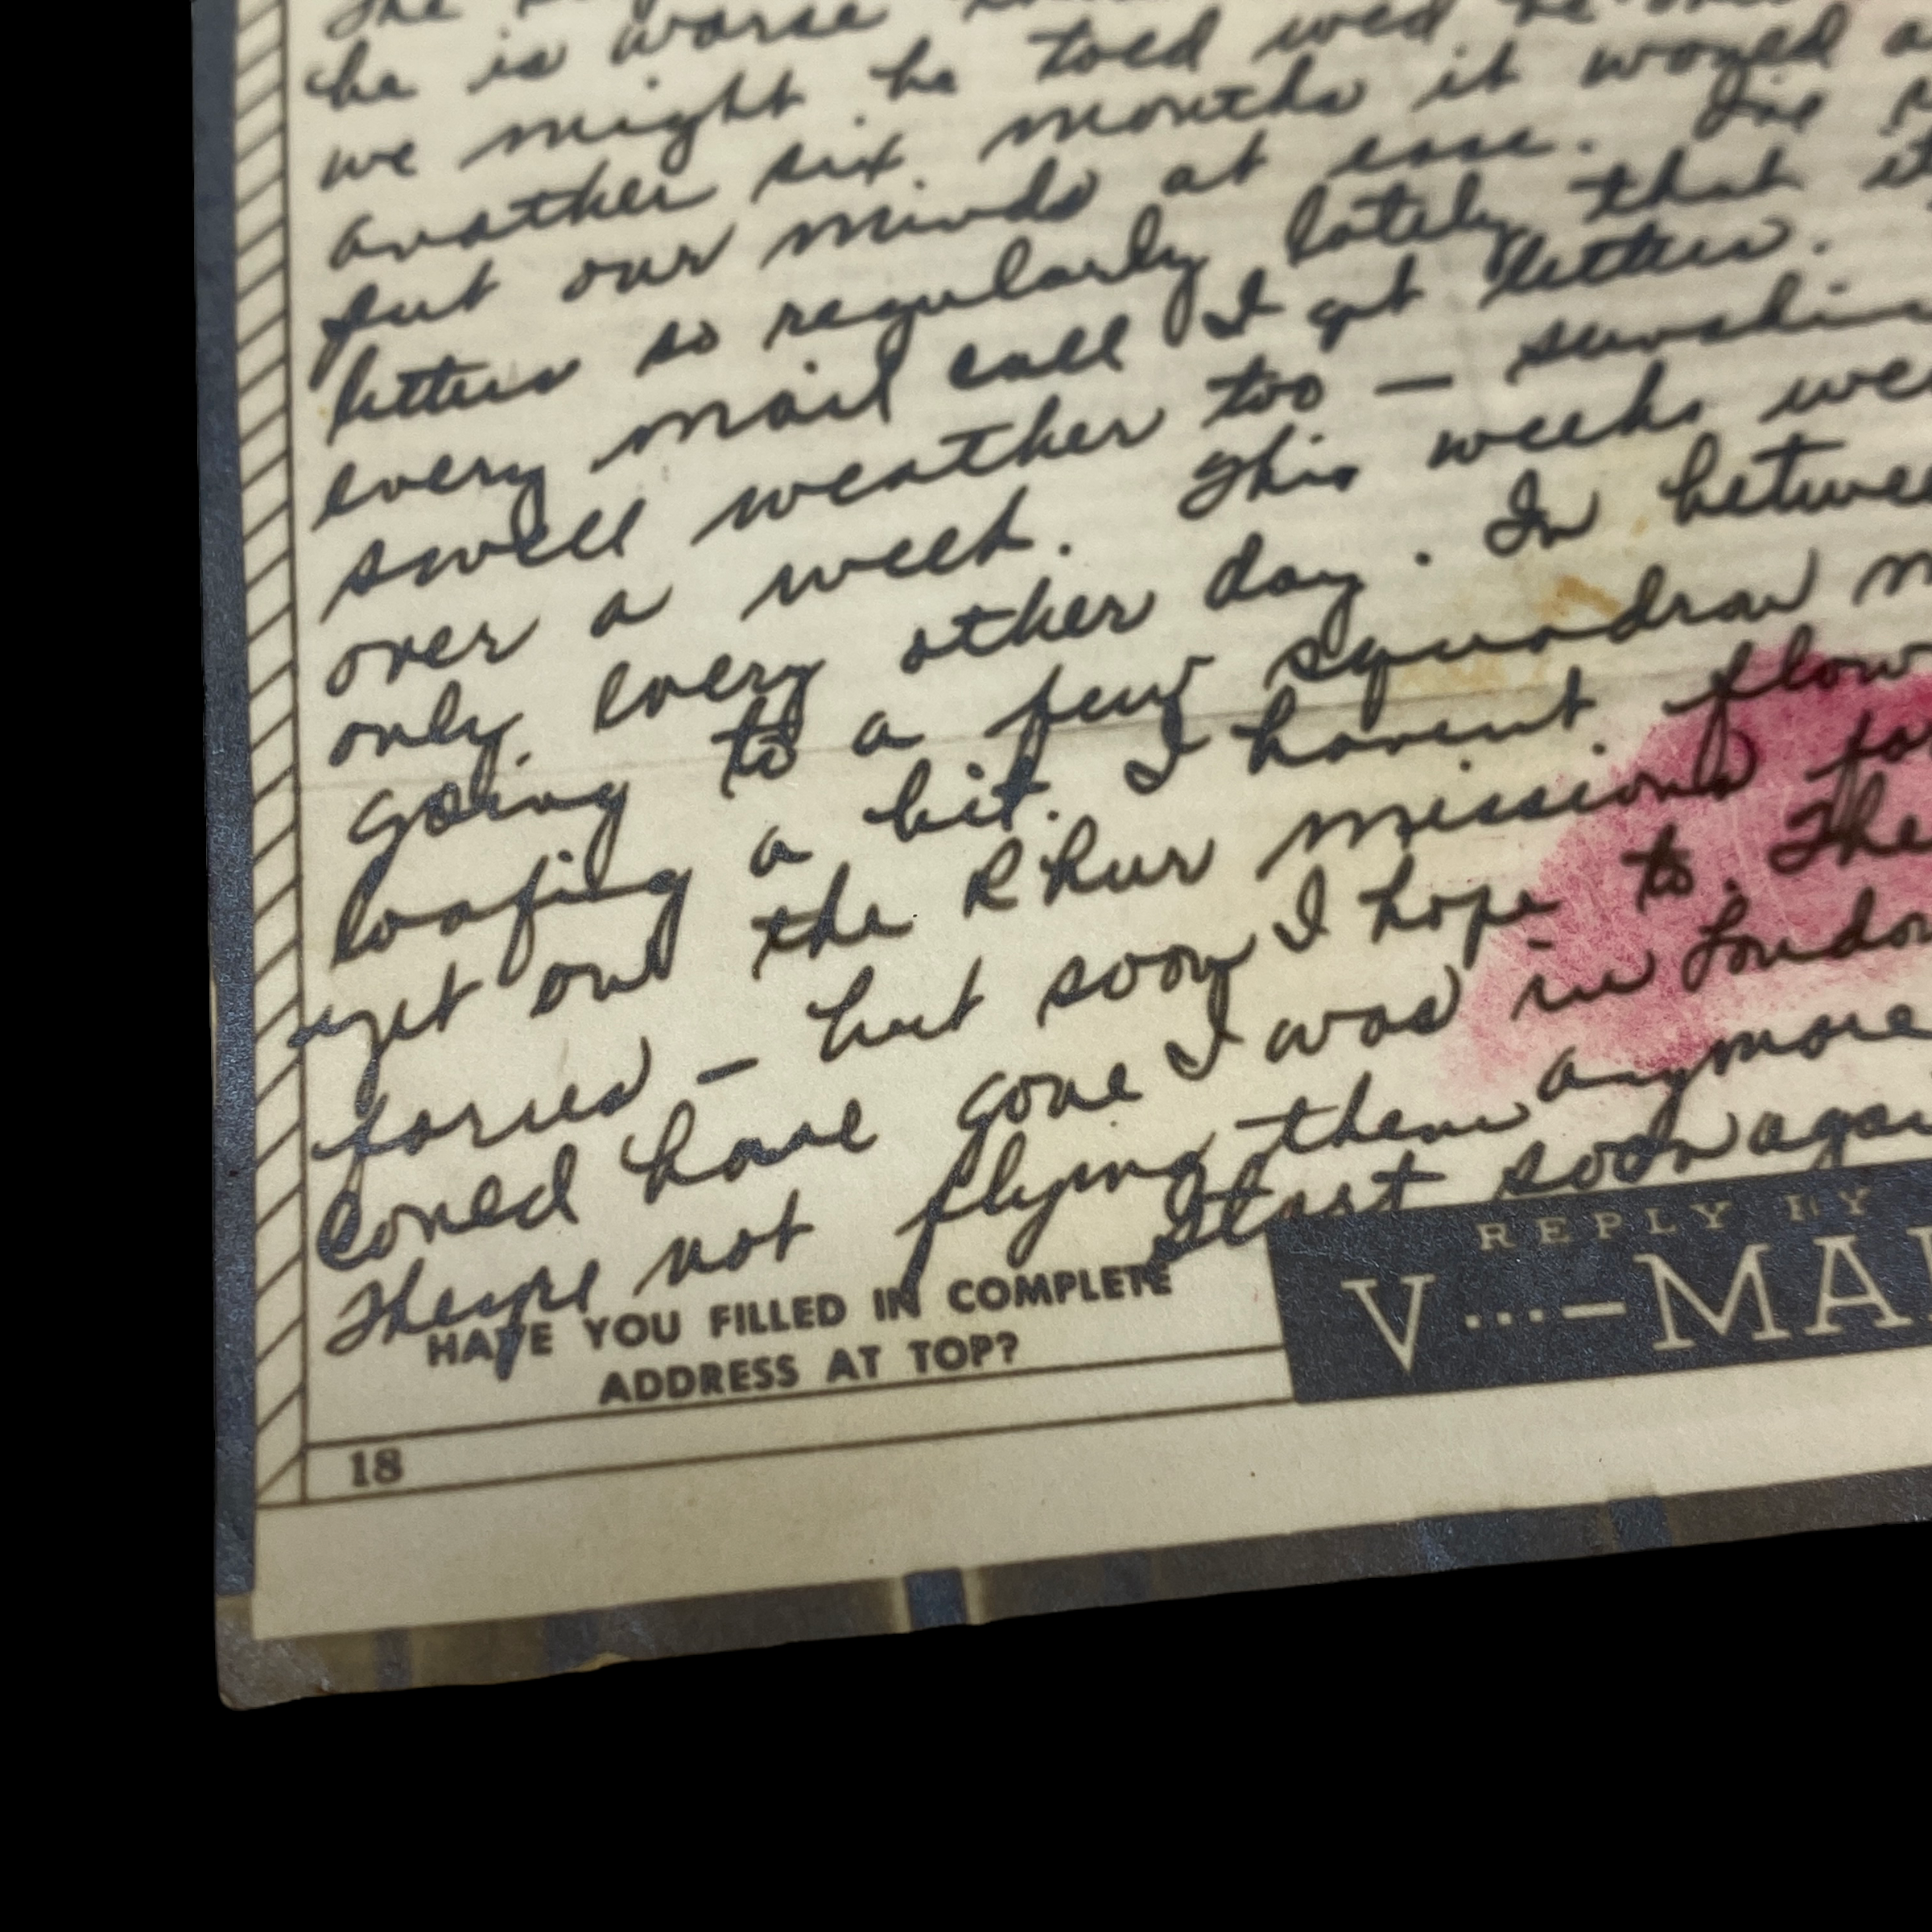 The
he is worse
we might be told wed be
another six months it would
put our minds at ease. Ive
letters so regularly lately that it
every mail call I get letters.
swell weather too — sunshin
over a week. This weeks we
only every other day. In betwee
going to a few squadron m
loafing a bit. I havent flow
get on the Rhur missions for
forces — but soon I hope to. The
could have gone I was in London
Theyre not flying them anymore
start soon agai
HAVE YOU FILLED IN COMPLETE
ADDRESS AT TOP?
REPLY BY
V...–MAI
18